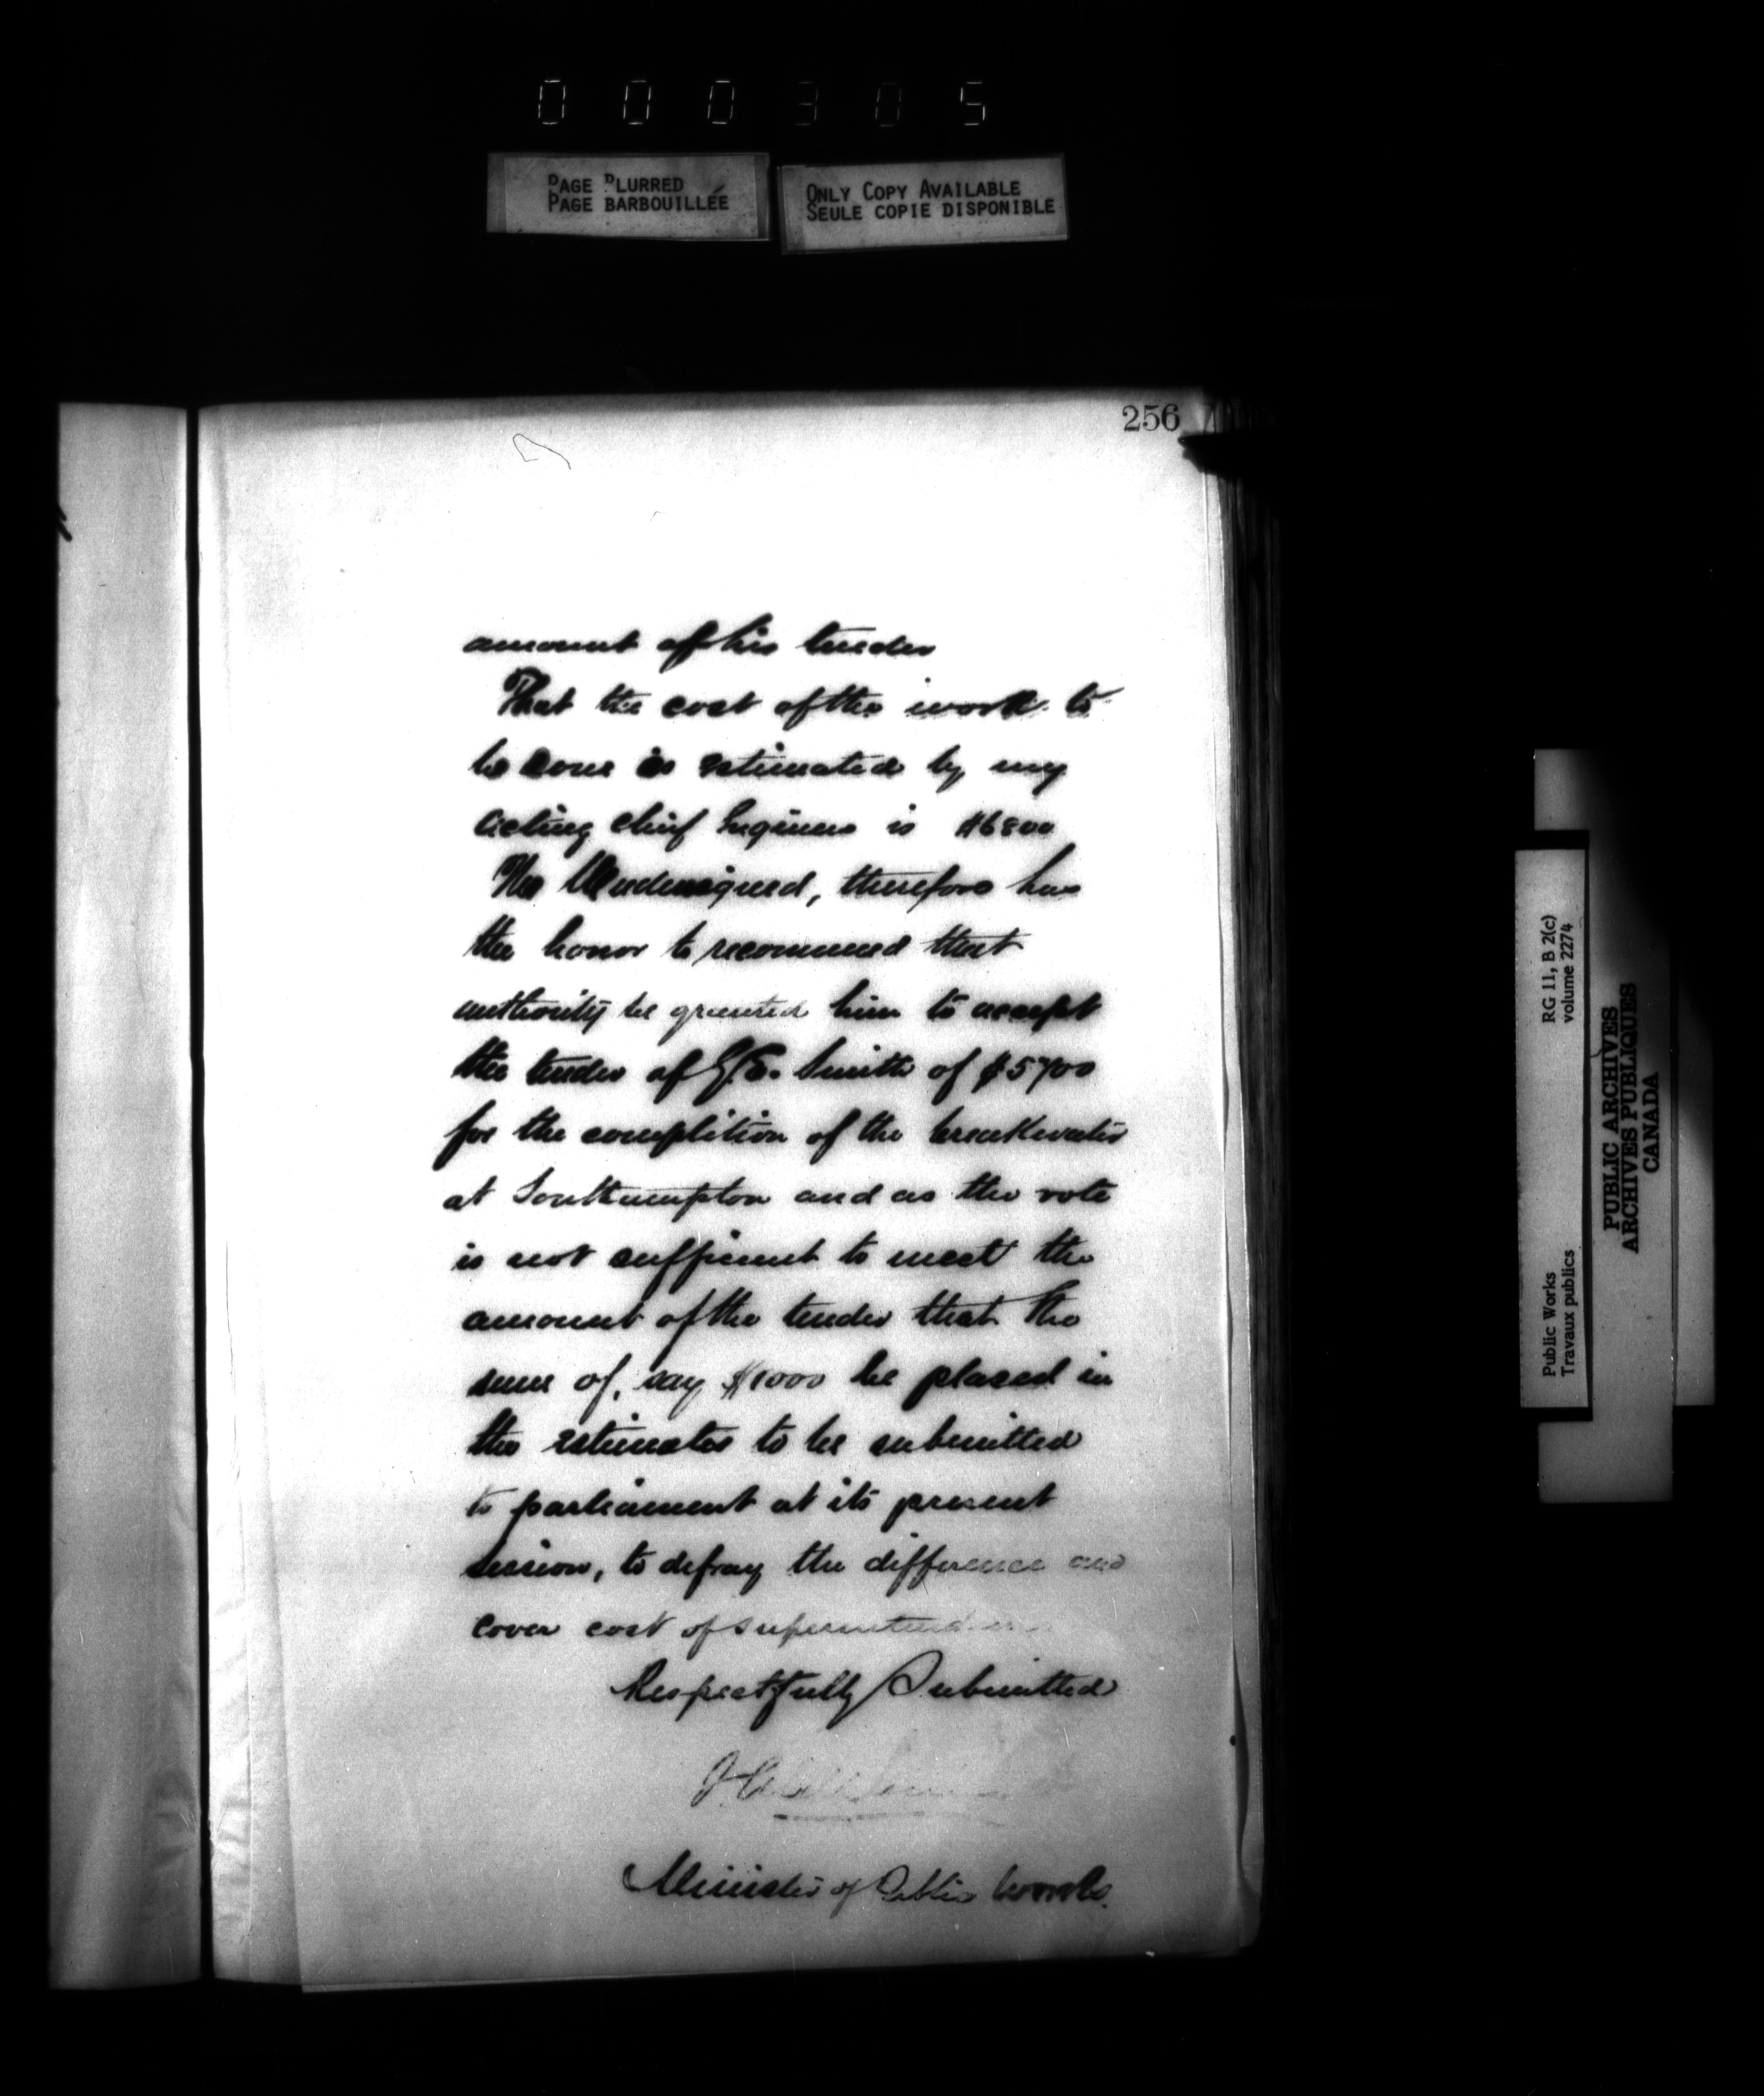 000305
PAGE BLURRED
PAGE BARBOUILLÉE
ONLY COPY AVAILABLE
SEULE COPIE DISPONIBLE
256
amount of his tender
That the cost of the work to
be done as estimated by my
acting chief Engineer is $6800
The Undersigned, therefore has
the honor to recommend that
authority be granted him to accept
the tender of Smith of $5700
for the completion of the breakwater
at Southampton and as the vote
is not sufficient to meet the
amount of the tender that the
sum of, say $1000 be placed in
the estimates to be submitted
to parliament at its present
session, to defray the difference and
cover cost of superintendence
Respectfully Submitted
Minister of Public Works.
Public Works
Travaux publics
RG 11, B 2(c)
volume 2274
PUBLIC ARCHIVES
ARCHIVES PUBLIQUES
CANADA